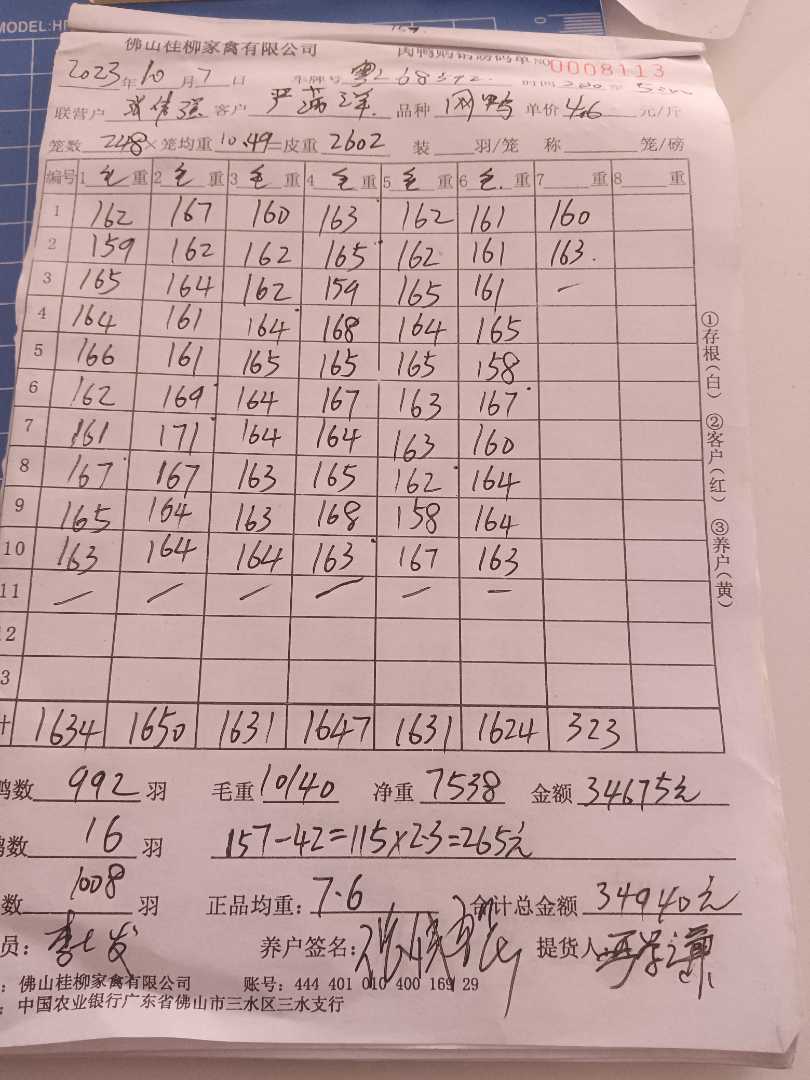 MODEL:H
佛山桂柳家禽有限公司 肉鸭购销磅码单 No 0008113
2023年10月7日 车牌号 粤 时间
联营户 客户 严满洋 品种 网鸭 单价 4.6 元/斤
笼数 248 × 笼均重 10.49 = 皮重 2602 装 羽/笼 称 笼/磅
编号 1 毛 重 2 毛 重 3 毛 重 4 毛 重 5 毛 重 6 毛 重 7 重 8 重
1 162 167 160 163 162 161 160
2 159 162 162 165 162 161 163
3 165 164 162 159 165 161 —
4 164 161 164 168 164 165
5 166 161 165 165 165 158
6 162 169 164 167 163 167
7 161 171 164 164 163 160
8 167 167 163 165 162 164
9 165 164 163 168 158 164
10 163 164 164 163 167 163
11 — — — — — —
2
3
计 1634 1650 1631 1647 1631 1624 323
鸭数 992 羽 毛重 10140 净重 7538 金额 34675元
鸭数 16 羽 157-42=115×2.3=265元
数 1008 羽 正品均重: 7.6 合计总金额 34940元
员: 养户签名: 提货人:
: 佛山桂柳家禽有限公司 账号: 444 401 010 400 169 29
: 中国农业银行广东省佛山市三水区三水支行
①存根(白) ②客户(红) ③养户(黄)